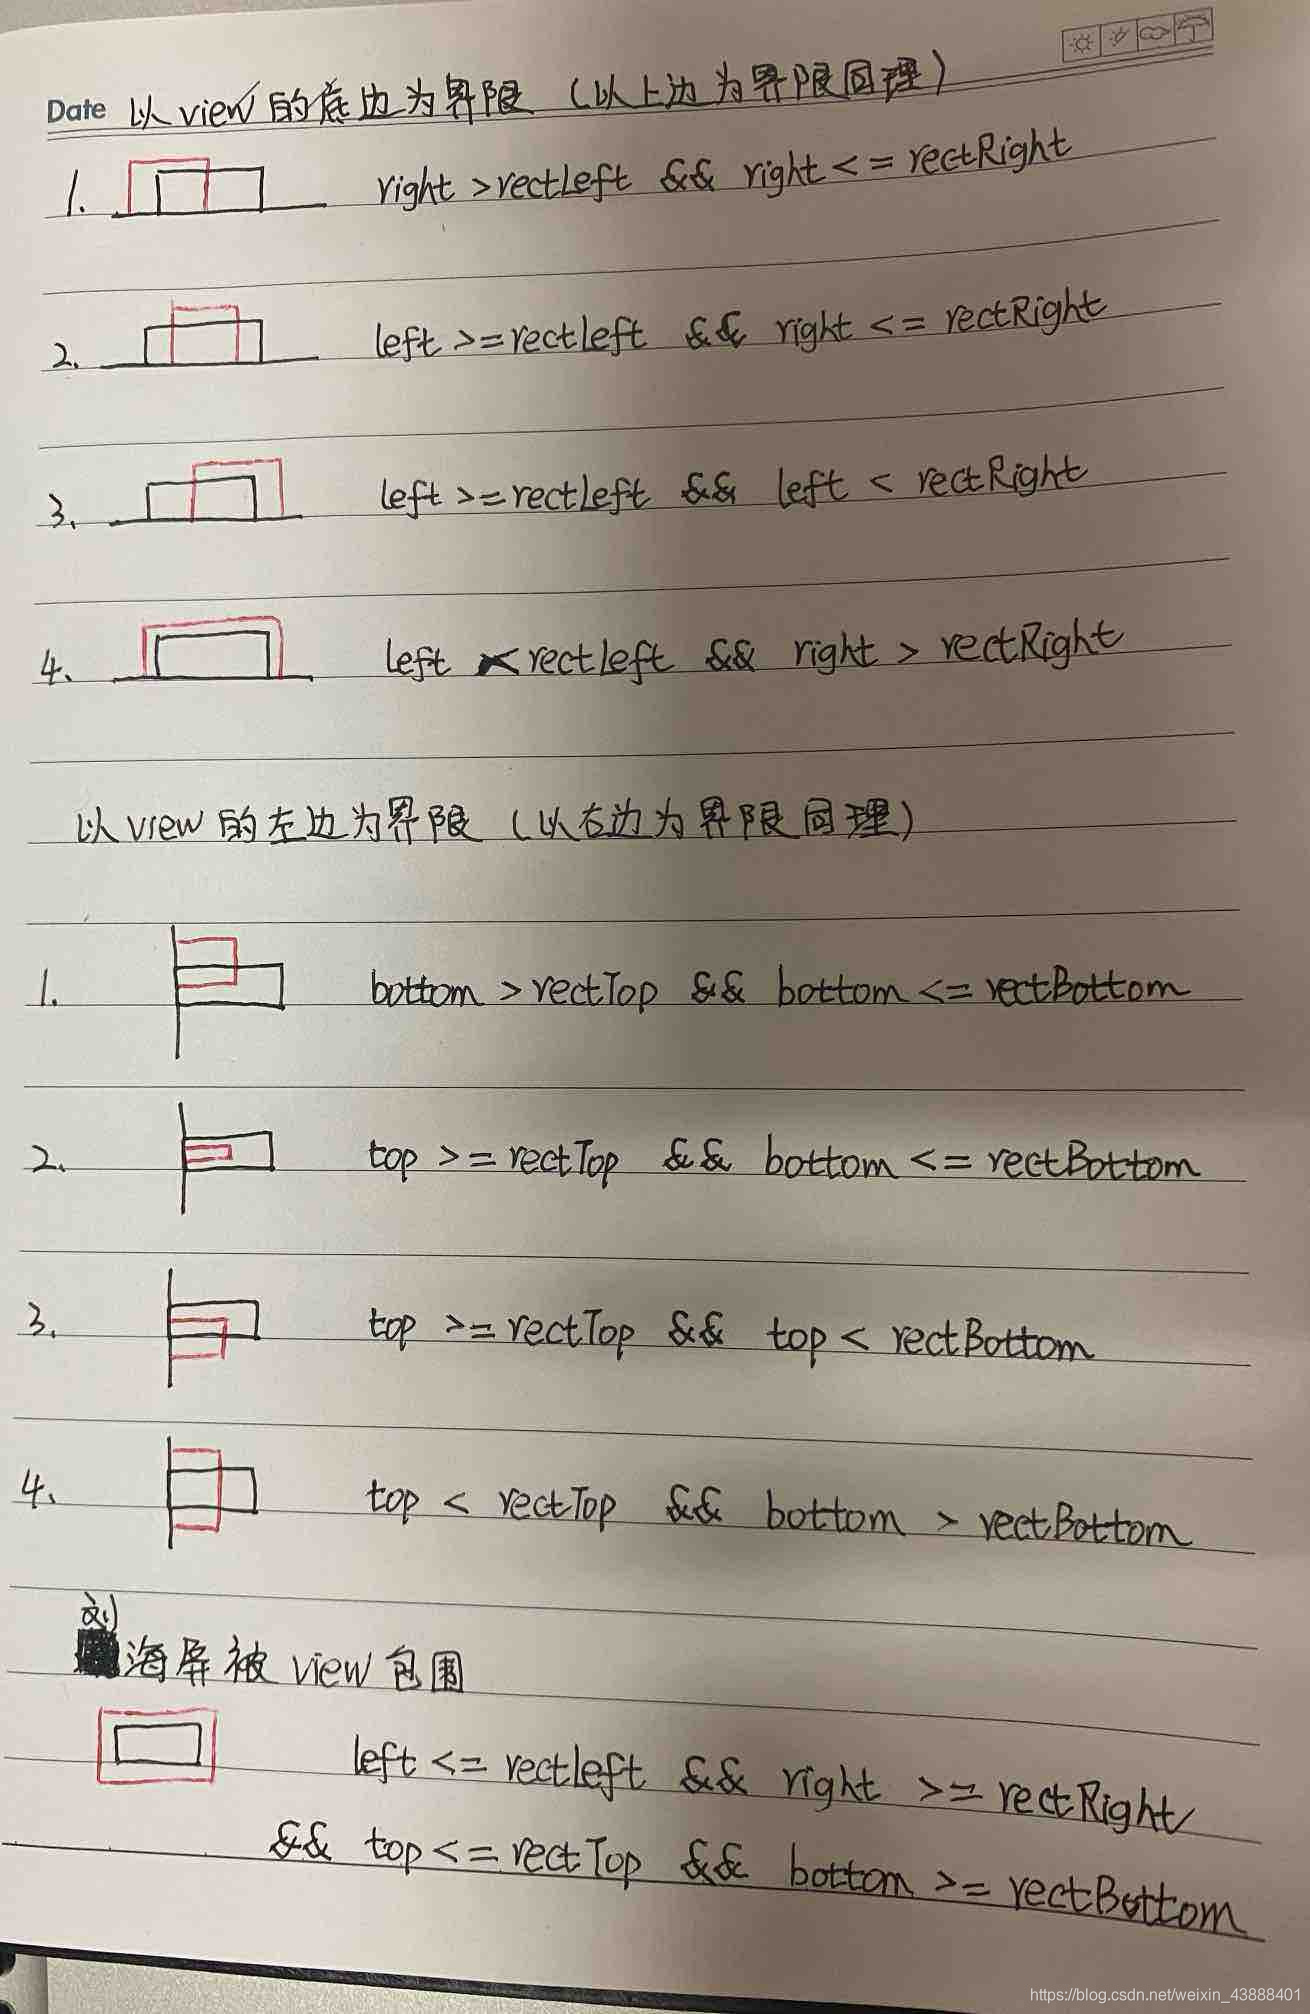 Date 以view的底边为界限（以上边为界限同理）
1. right >rectLeft && right <= rectRight
2. left >=rectleft && right <= rectRight
3. left >=rectLeft && left < rectRight
4. left <rectleft && right > rectRight
以view的左边为界限（以右边为界限同理）
1. bottom > rectTop && bottom <= rectBottom
2. top >= rectTop && bottom <= rectBottom
3. top >= rectTop && top < rectBottom
4. top < rectTop && bottom > rectBottom
刘
海屏被view包围
left <= rectleft && right >= rectRight
&& top <= rectTop && bottom >= rectBottom
https://blog.csdn.net/weixin_43888401